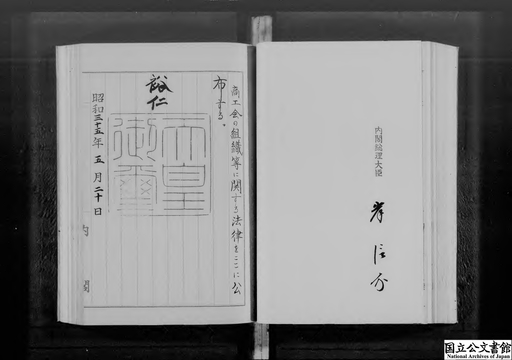 商工会の組織等に関する法律をここに公
布する。
裕仁
天皇
御璽
昭和三十五年五月二十日
内閣
内閣総理大臣
岸信介
国立公文書館
National Archives of Japan